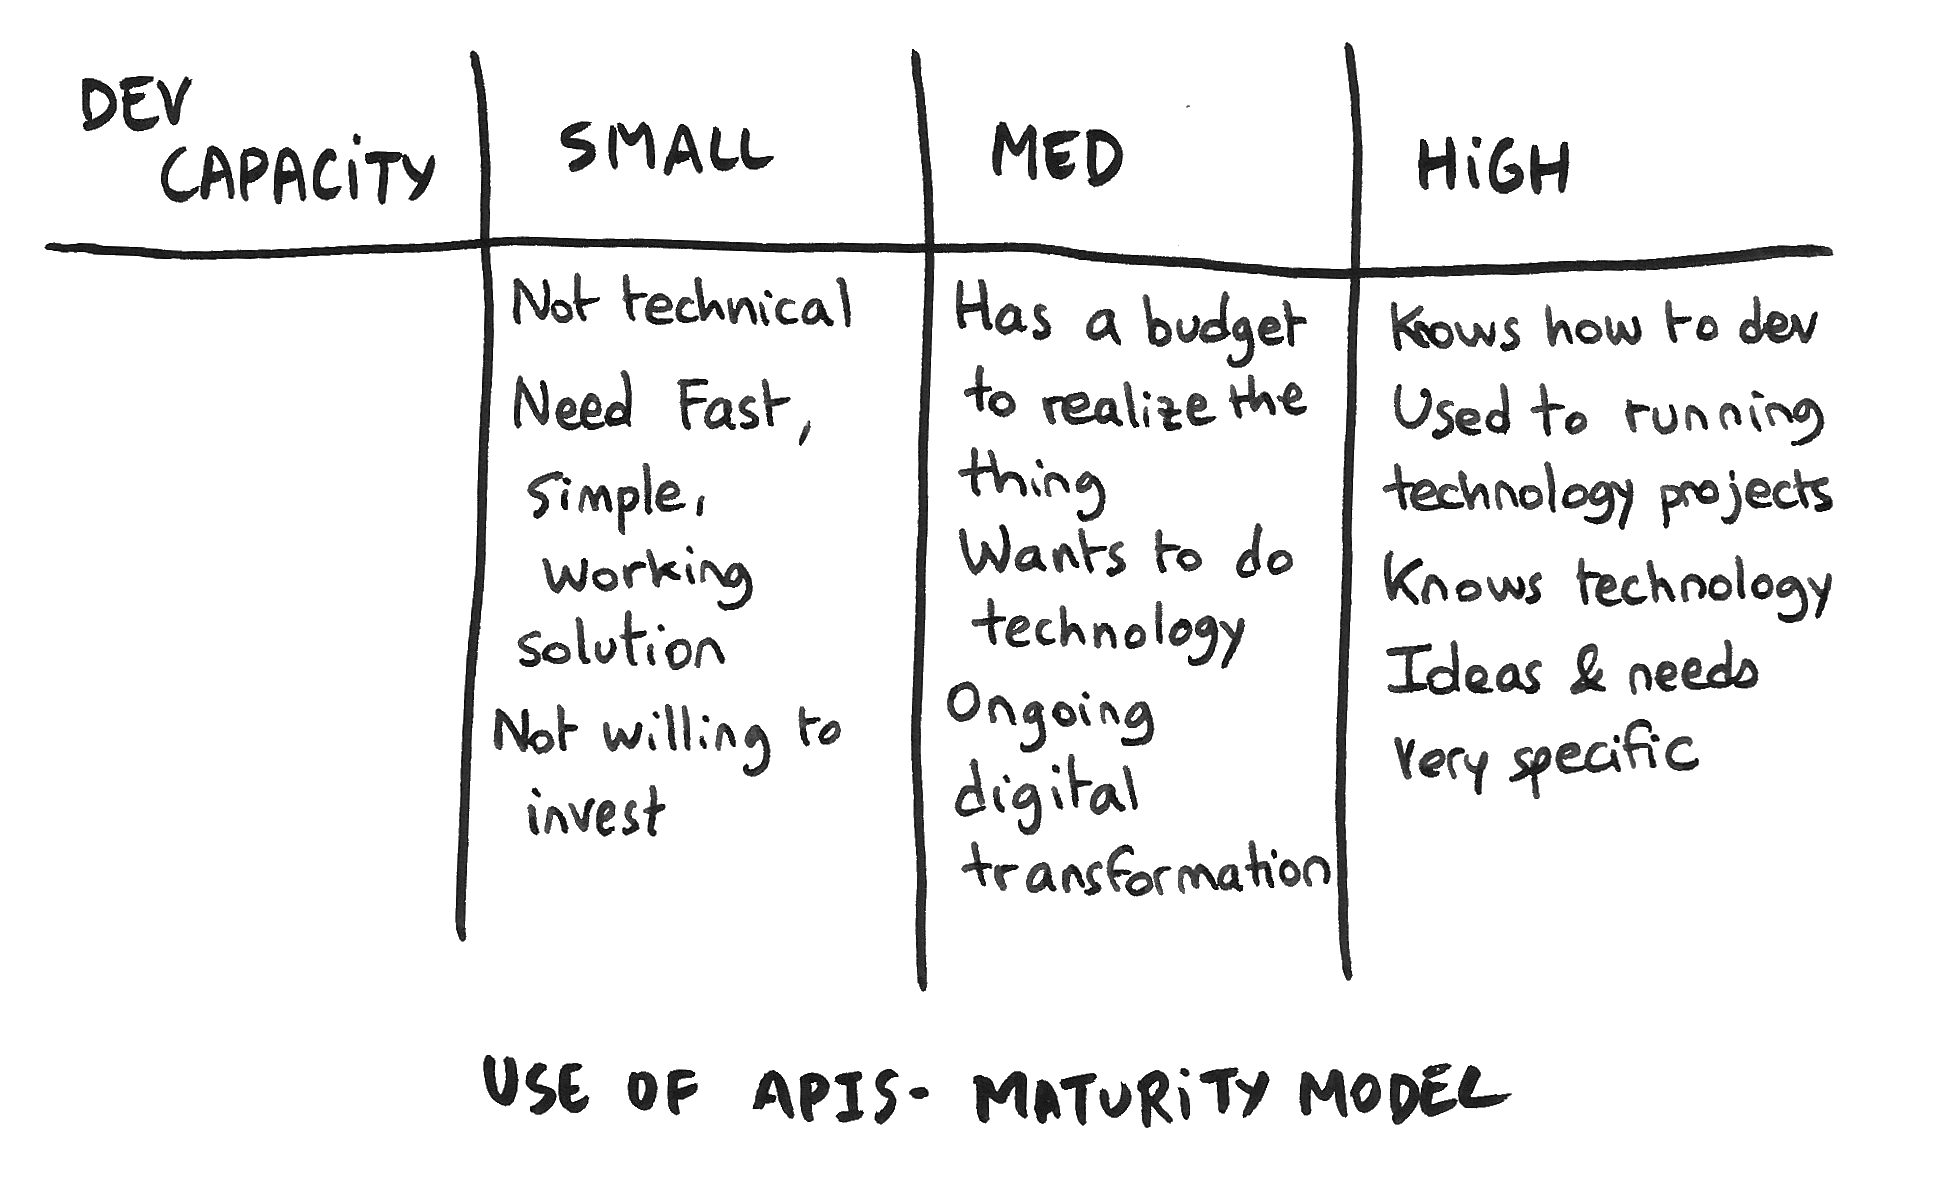 DEV
CAPACiTY
SMALL
MED
HiGH
Not technical
Need Fast,
simple,
working
solution
Not willing to
invest
Has a budget
to realize the
thing
Wants to do
technology
Ongoing
digital
transformation
Knows how to dev
Used to running
technology projects
Knows technology
Ideas & needs
very specific
USE OF APIS- MATURiTY MODEL